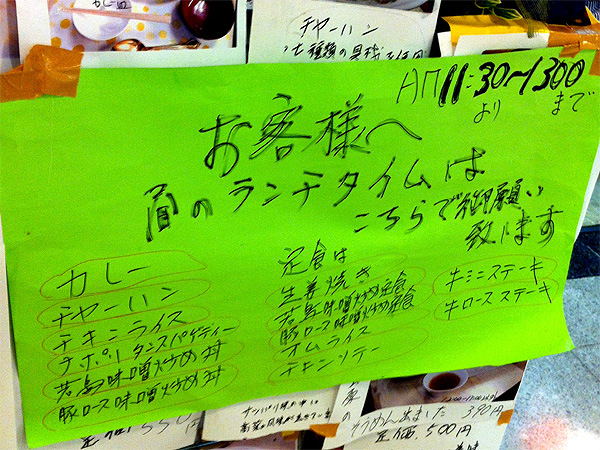 カレー皿
チャーハン
AM 11:30〜1300
より まで
お客様へ
昼のランチタイムは
こちらで御願い
致します
カレー
チャーハン
チキンライス
ナポリタンスパゲティー
若鳥味噌炒め丼
豚ロース味噌炒め丼
定食は
生姜焼き
若鳥味噌炒め定食
豚ロース味噌炒め定食
オムライス
チキンソテー
牛ミニステーキ
牛ロースステーキ
定価550円
そうめん出ました 390円
定価 500円